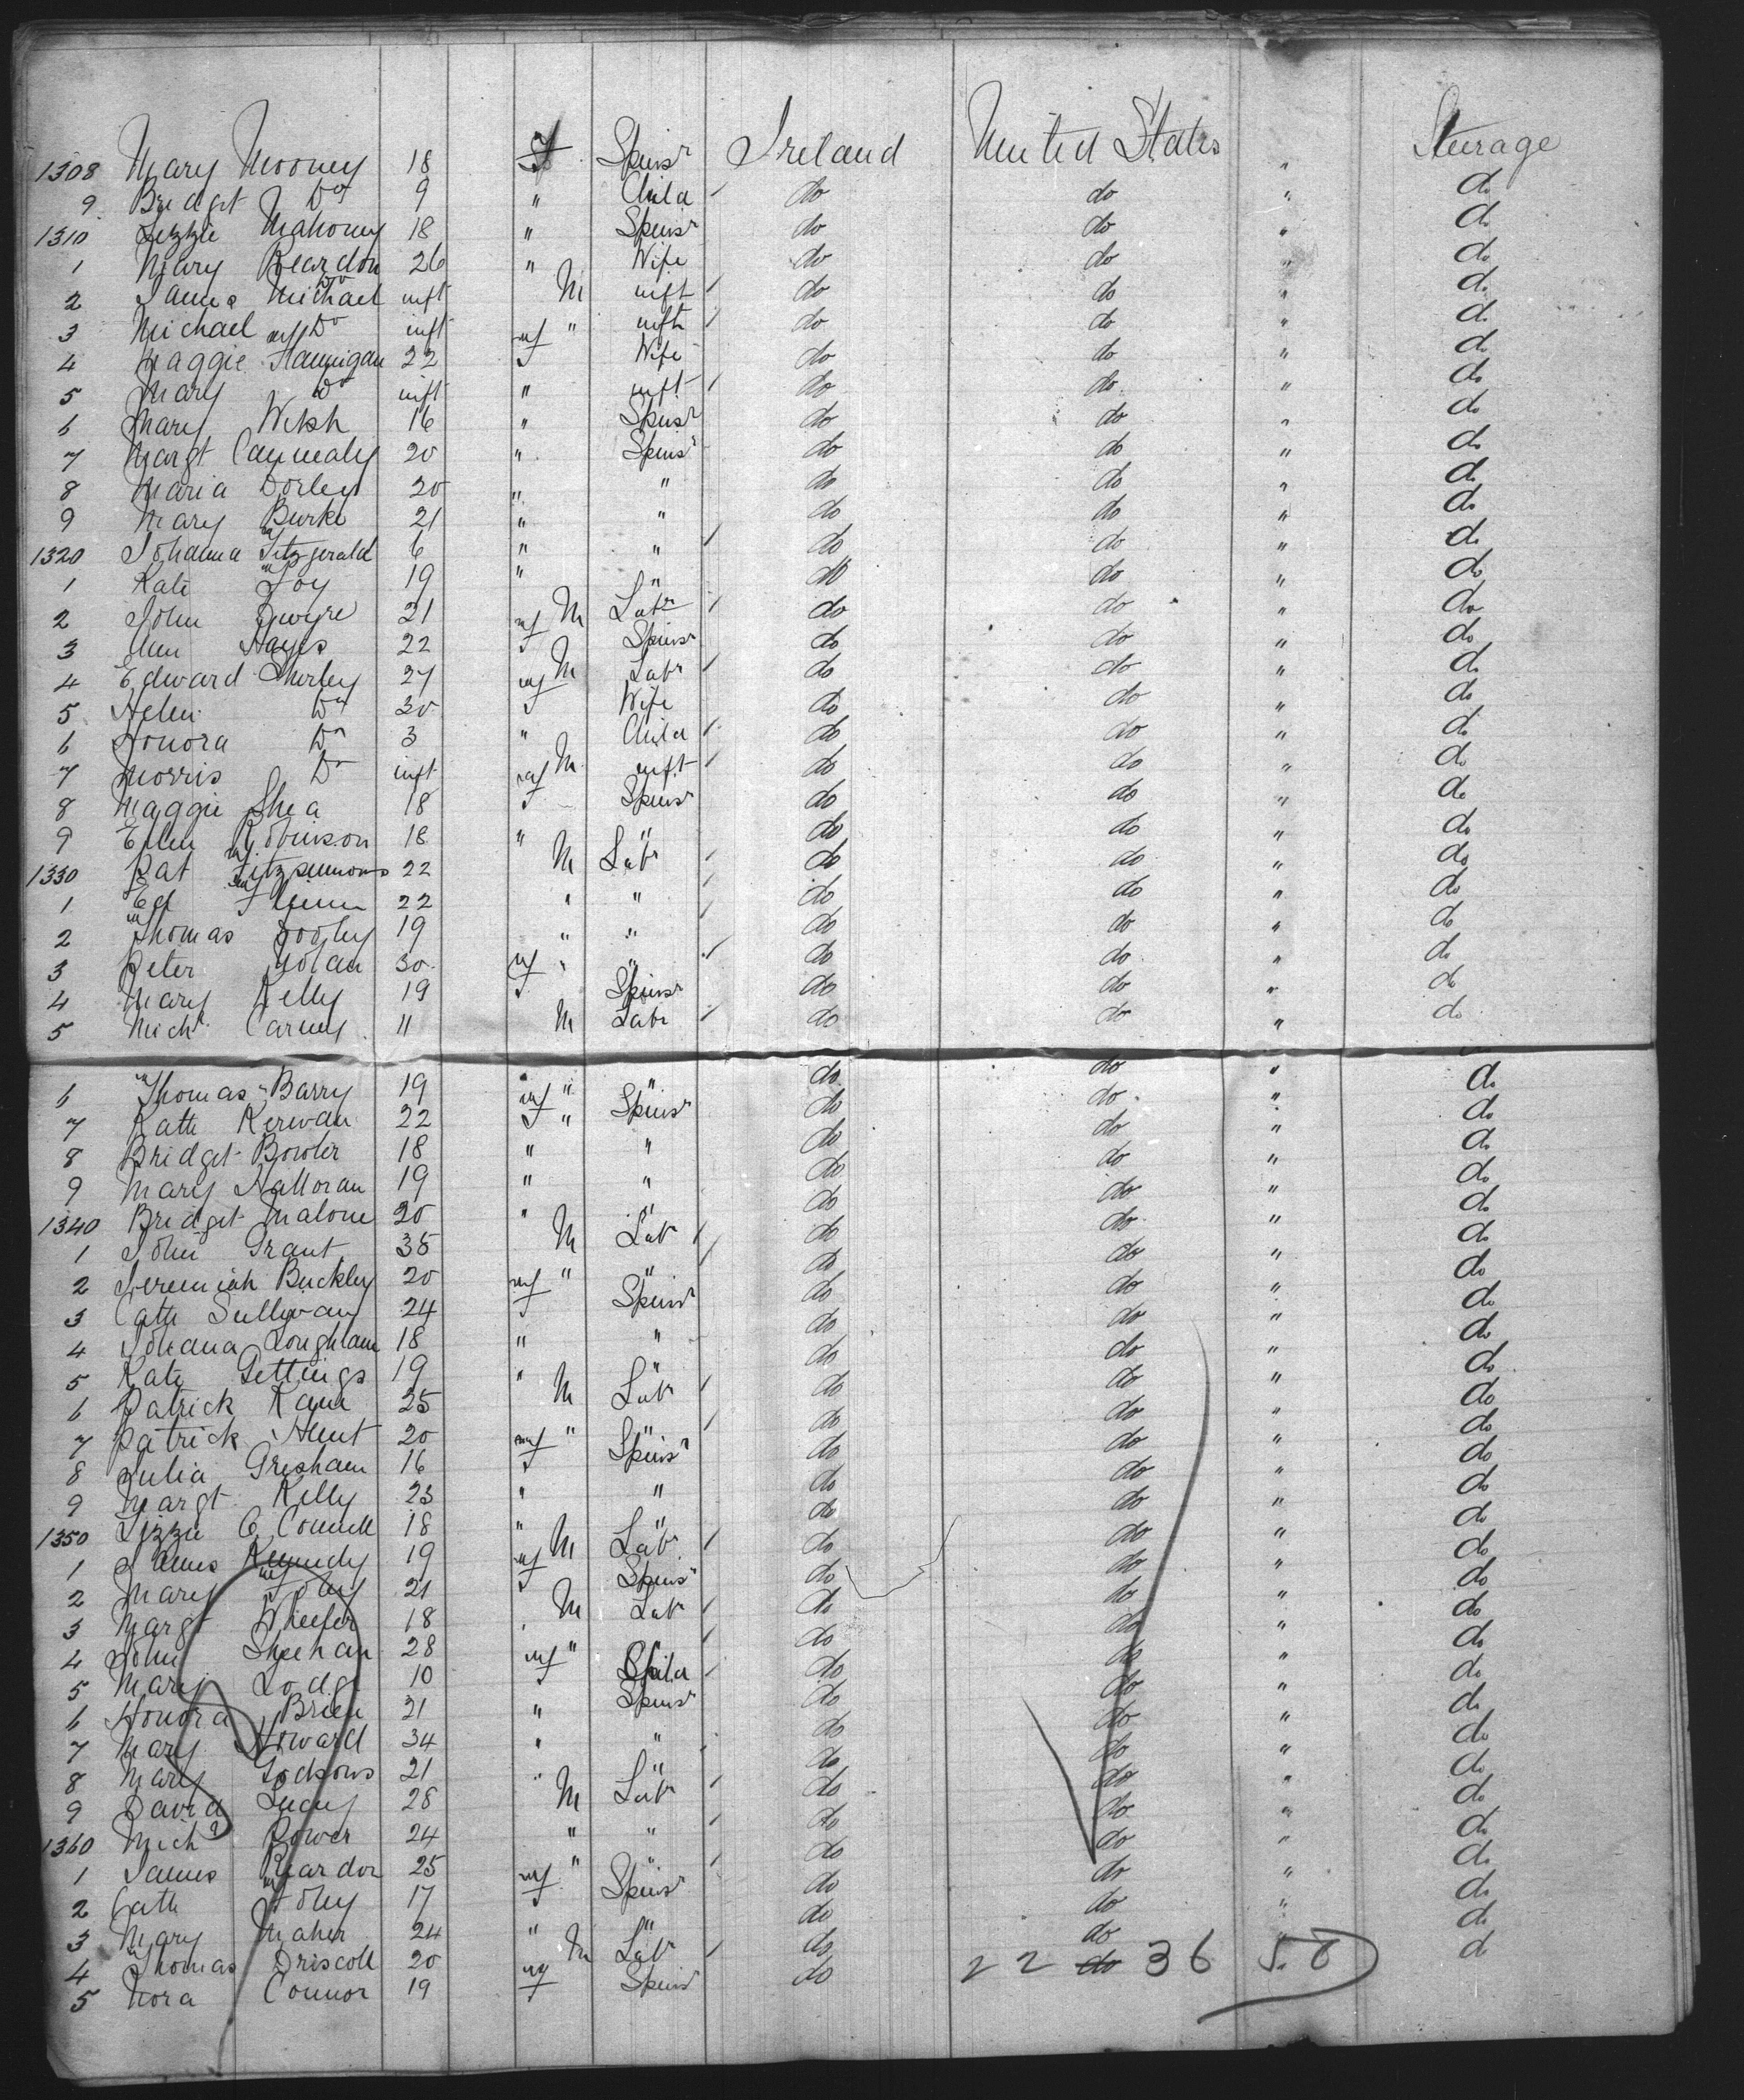 1308 Mary Mooney 18 F Spinsr Ireland United States " Steerage
9 Bridget Do 9 " Child do do " do
1310 Lizzie Mahoney 18 " Spinsr do do " do
1 Mary Reardon 26 " Wife do do " do
2 James Michael Do inft M inft do do " do
3 Michael Do inft " inft do do " do
4 Maggie Flannigan 22 F Wife do do " do
5 Mary Do inft " inft do do " do
6 Mary Welsh 16 " Spinsr do do " do
7 Margt 20 " Spinsr do do " do
8 Maria Dorley 20 " " do do " do
9 Mary Burke 21 " " do do " do
1320 Johanna Fitzgerald 6 " " do do " do
1 Kate Foy 19 " " do do " do
2 John Dwyre 21 M Labr do do " do
3 Ann Hayes 22 F Spinsr do do " do
4 Edward 27 M Labr do do " do
5 Helen Do 30 F Wife do do " do
6 Honora Do 3 " Child do do " do
7 Morris Do inft M inft do do " do
8 Maggie Shea 18 F Spinsr do do " do
9 Ellen Robinson 18 " " do do " do
1330 Pat Fitzsimmons 22 M Labr do do " do
1 Ed Flinn 22 " " do do " do
2 Thomas Dooley 19 " " do do " do
3 Peter Nolan 30 " " do do " do
4 Mary Kelly 19 F Spinsr do do " do
5 Michl Carney 11 M Labr do do " do
6 Thomas Barry 19 " " do do " do
7 Kate Kerwan 22 F " Spinsr do do " do
8 Bridget Bowler 18 " " do do " do
9 Mary Halloran 19 " " do do " do
1340 Bridget Malone 20 " " do do " do
1 John Grant 35 M Labr do do " do
2 Jeremiah Buckley 20 " " do do " do
3 Cath Sullivan 24 F Spinsr do do " do
4 Johana 18 " " do do " do
5 Kate Gettings 19 " " do do " do
6 Patrick Kane 25 M Labr do do " do
7 Patrick Hunt 20 " " do do " do
8 Julia Gresham 16 F Spinsr do do " do
9 Margt Kelly 23 " " do do " do
1350 Lizzie O Connell 18 " " do do " do
1 James Kennedy 19 M Labr do do " do
2 Mary Foley 21 F Spinsr do do " do
3 Margt 18 M Labr do do " do
4 John Sheehan 28 " " do do " do
5 Mary Lodge 10 F Child do do " do
6 Honora Brien 21 " Spinsr do do " do
7 Mary Howard 34 " " do do " do
8 Mary 21 " " do do " do
9 David Lucey 28 M Labr do do " do
1360 Michl Power 24 " " do do " do
1 James Reardon 25 " " do do " do
2 Cath Foley 17 F Spinsr do do " do
3 Mary Maher 24 " " do do " do
4 Thomas Driscoll 20 M Labr do do " do
5 Nora Connor 19 F Spinsr do do
22 36 58